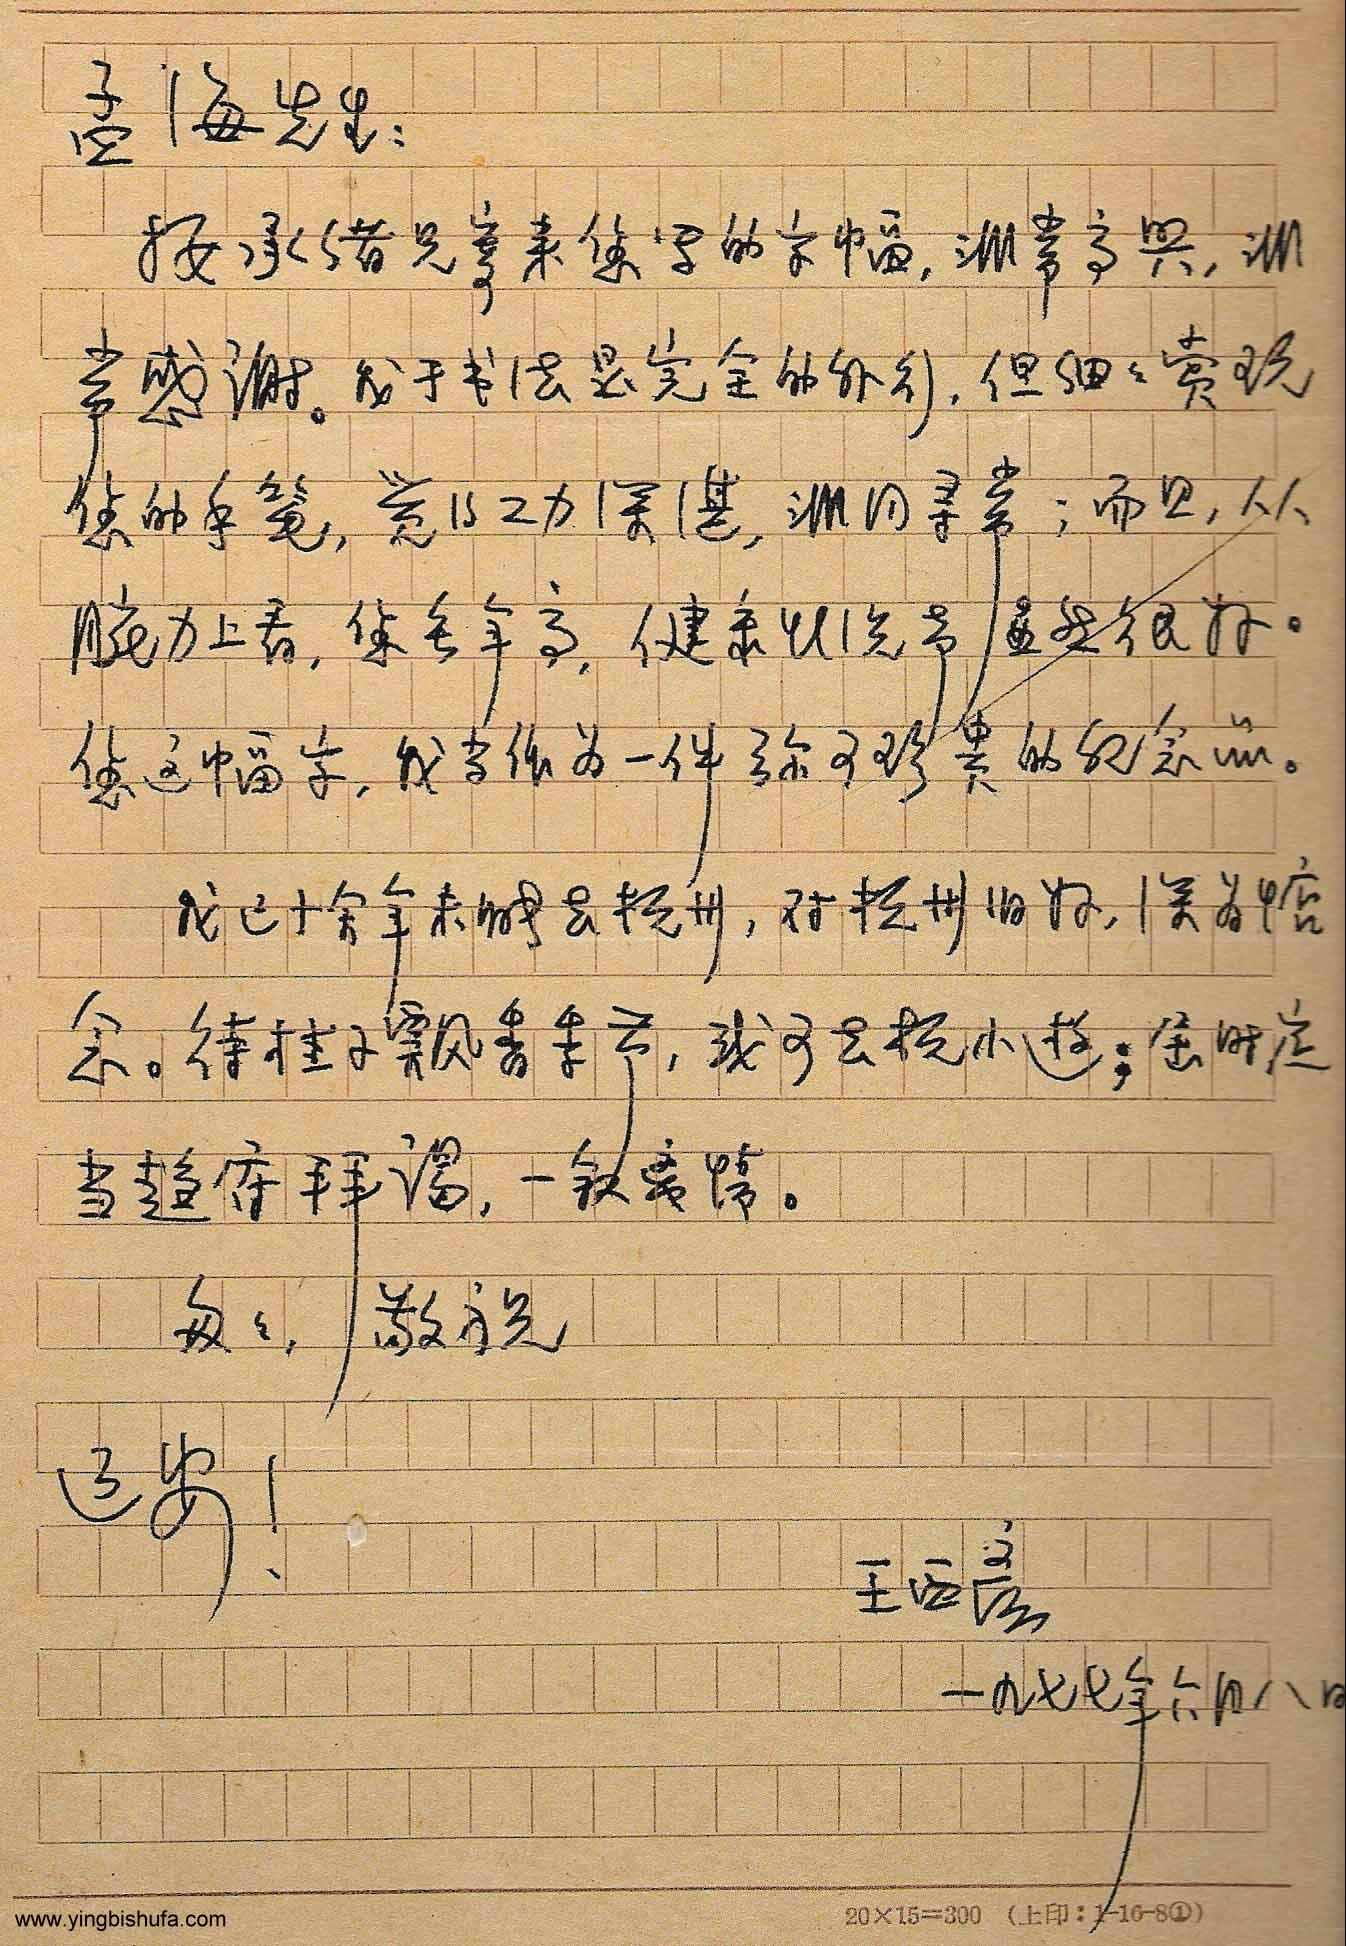 孟海先生：
接承绪兄寄来您写的字幅，洲常高兴，洲
常感谢。我于书法是完全的外行，但细々赏观
您的手笔，觉得工力深湛，洲同寻常；而且，从
腕力上看，您年高，健康状况当益然很好。
您这幅字，我当作为一件弥可珍贵的纪念品。
我已十余年未能去杭州，对杭州旧好，深为悟
念。待桂子飘香季节，或可去杭小游；届时定
当趋府拜谒，一叙离情。
匆々，敬祝
近安！
王西彦
一九七七年六月八日
www.yingbishufa.com
20×15＝300 （上印：1-16-8①）